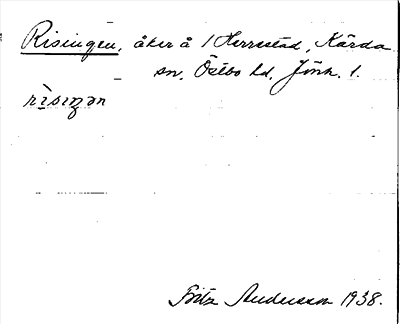 Risingen, åker å 1 Herrestad, Kärda
sn, Östbo hd, Jönk. l.
rìsiŋən
Fritz Andersson 1938.